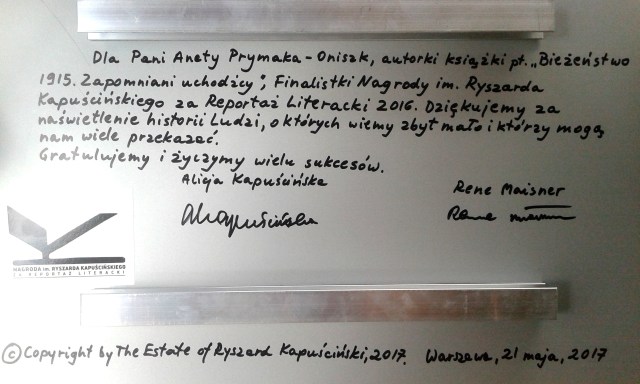 Dla Pani Anety Prymaka-Oniszk, autorki książki pt. „Bieżeństwo
1915. Zapomniani uchodźcy”, Finalistki Nagrody im. Ryszarda
Kapuścińskiego za Reportaż Literacki 2016. Dziękujemy za
naświetlenie historii Ludzi, o których wiemy zbyt mało i którzy mogą
nam wiele przekazać.
Gratulujemy i życzymy wielu sukcesów.
Alicja Kapuścińska
Rene Maisner
AKapuścińska
Rene
NAGRODA im. RYSZARDA KAPUŚCIŃSKIEGO
ZA REPORTAŻ LITERACKI
© Copyright by The Estate of Ryszard Kapuściński, 2017. Warszawa, 21 maja, 2017